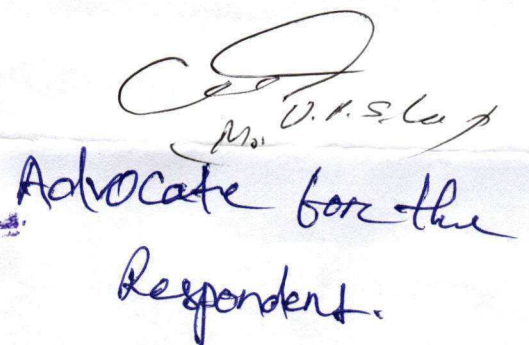 Advocate for the
Respondent.